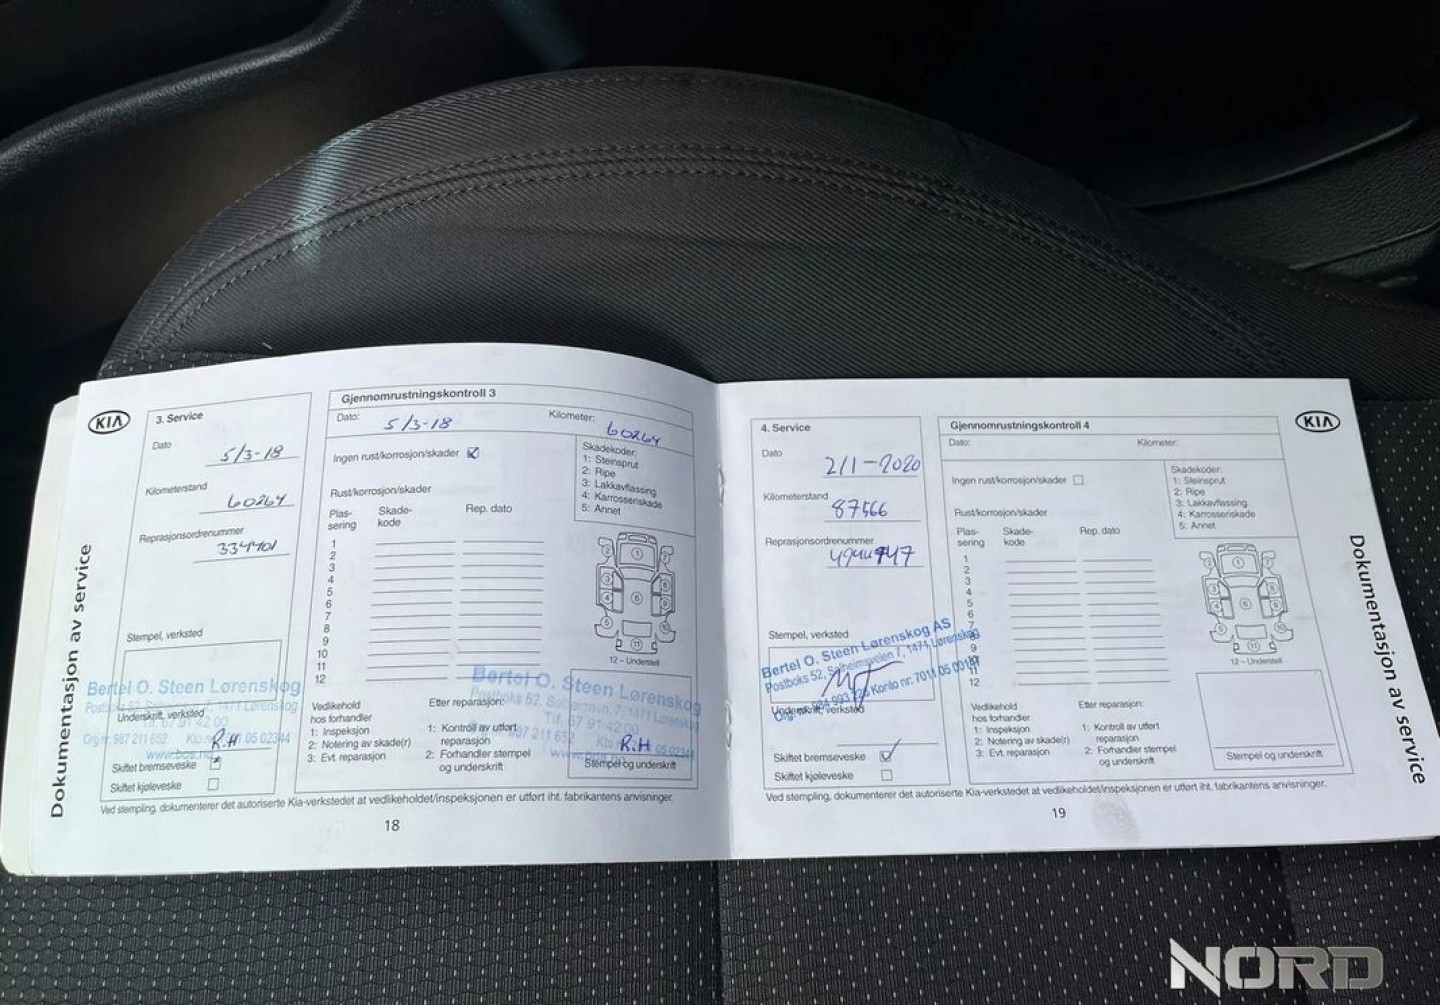 KIA
3. Service
Dato
5/3-18
Kilometerstand
60264
Reprasjonsordrenummer
334401
Stempel, verksted
Bertel O. Steen Lørenskog
1471 Lørenskog
Underskrift, verksted
67 91 42 00
Org.nr. 987 211 652
R.H
www.bos.no
Skiftet bremseveske
Skiftet kjøleveske
Dokumentasjon av service
Gjennomrustningskontroll 3
Dato: 5/3-18 Kilometer: 60264
Ingen rust/korrosjon/skader
Skadekoder:
1: Steinsprut
2: Ripe
3: Lakkavflassing
4: Karrosseriskade
5: Annet
Rust/korrosjon/skader
Plas-
sering
Skade-
kode
Rep. dato
1
2
3
4
5
6
7
8
9
10
11
12
12 – Understell
Vedlikehold
hos forhandler
1: Inspeksjon
2: Notering av skade(r)
3: Evt. reparasjon
Etter reparasjon:
1: Kontroll av utført
reparasjon
2: Forhandler stempel
og underskrift
Bertel O. Steen Lørenskog
Postboks 52, Solheimsvn. 7, 1471 Lørenskog
Tlf. 67 91 42 00
987 211 652
R.H
Stempel og underskrift
Ved stempling, dokumenterer det autoriserte Kia-verkstedet at vedlikeholdet/inspeksjonen er utført iht. fabrikantens anvisninger.
18
4. Service
Dato
2/1-2020
Kilometerstand
87566
Reprasjonsordrenummer
Stempel, verksted
Bertel O. Steen Lørenskog AS
Postboks 52, Solheimsveien 7, 1471 Lørenskog
Konto nr: 7011 05 00187
Underskrift, verksted
Skiftet bremseveske
Skiftet kjøleveske
Gjennomrustningskontroll 4
Dato: Kilometer:
Ingen rust/korrosjon/skader
Skadekoder:
1: Steinsprut
2: Ripe
3: Lakkavflassing
4: Karrosseriskade
5: Annet
Rust/korrosjon/skader
Plas-
sering
Skade-
kode
Rep. dato
1
2
3
4
5
6
7
8
9
10
11
12
12 – Understell
Vedlikehold
hos forhandler
1: Inspeksjon
2: Notering av skade(r)
3: Evt. reparasjon
Etter reparasjon:
1: Kontroll av utført
reparasjon
2: Forhandler stempel
og underskrift
Stempel og underskrift
Ved stempling, dokumenterer det autoriserte Kia-verkstedet at vedlikeholdet/inspeksjonen er utført iht. fabrikantens anvisninger.
19
KIA
Dokumentasjon av service
NORD